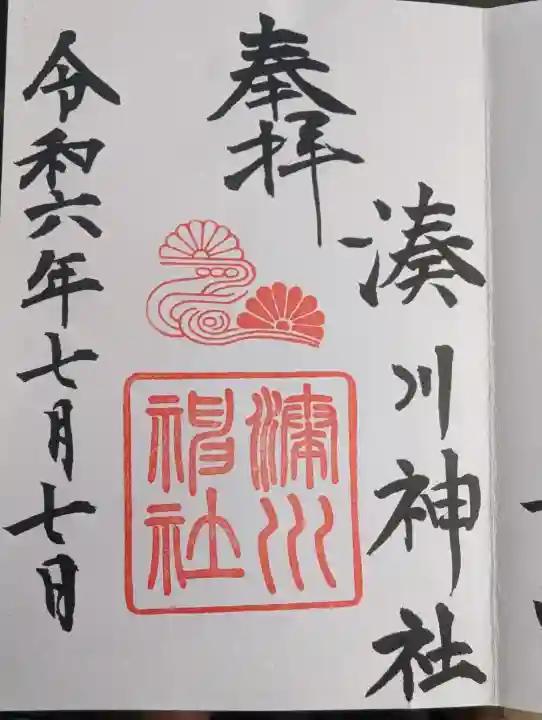 奉拝
湊川神社
湊川
神社
令和六年七月七日